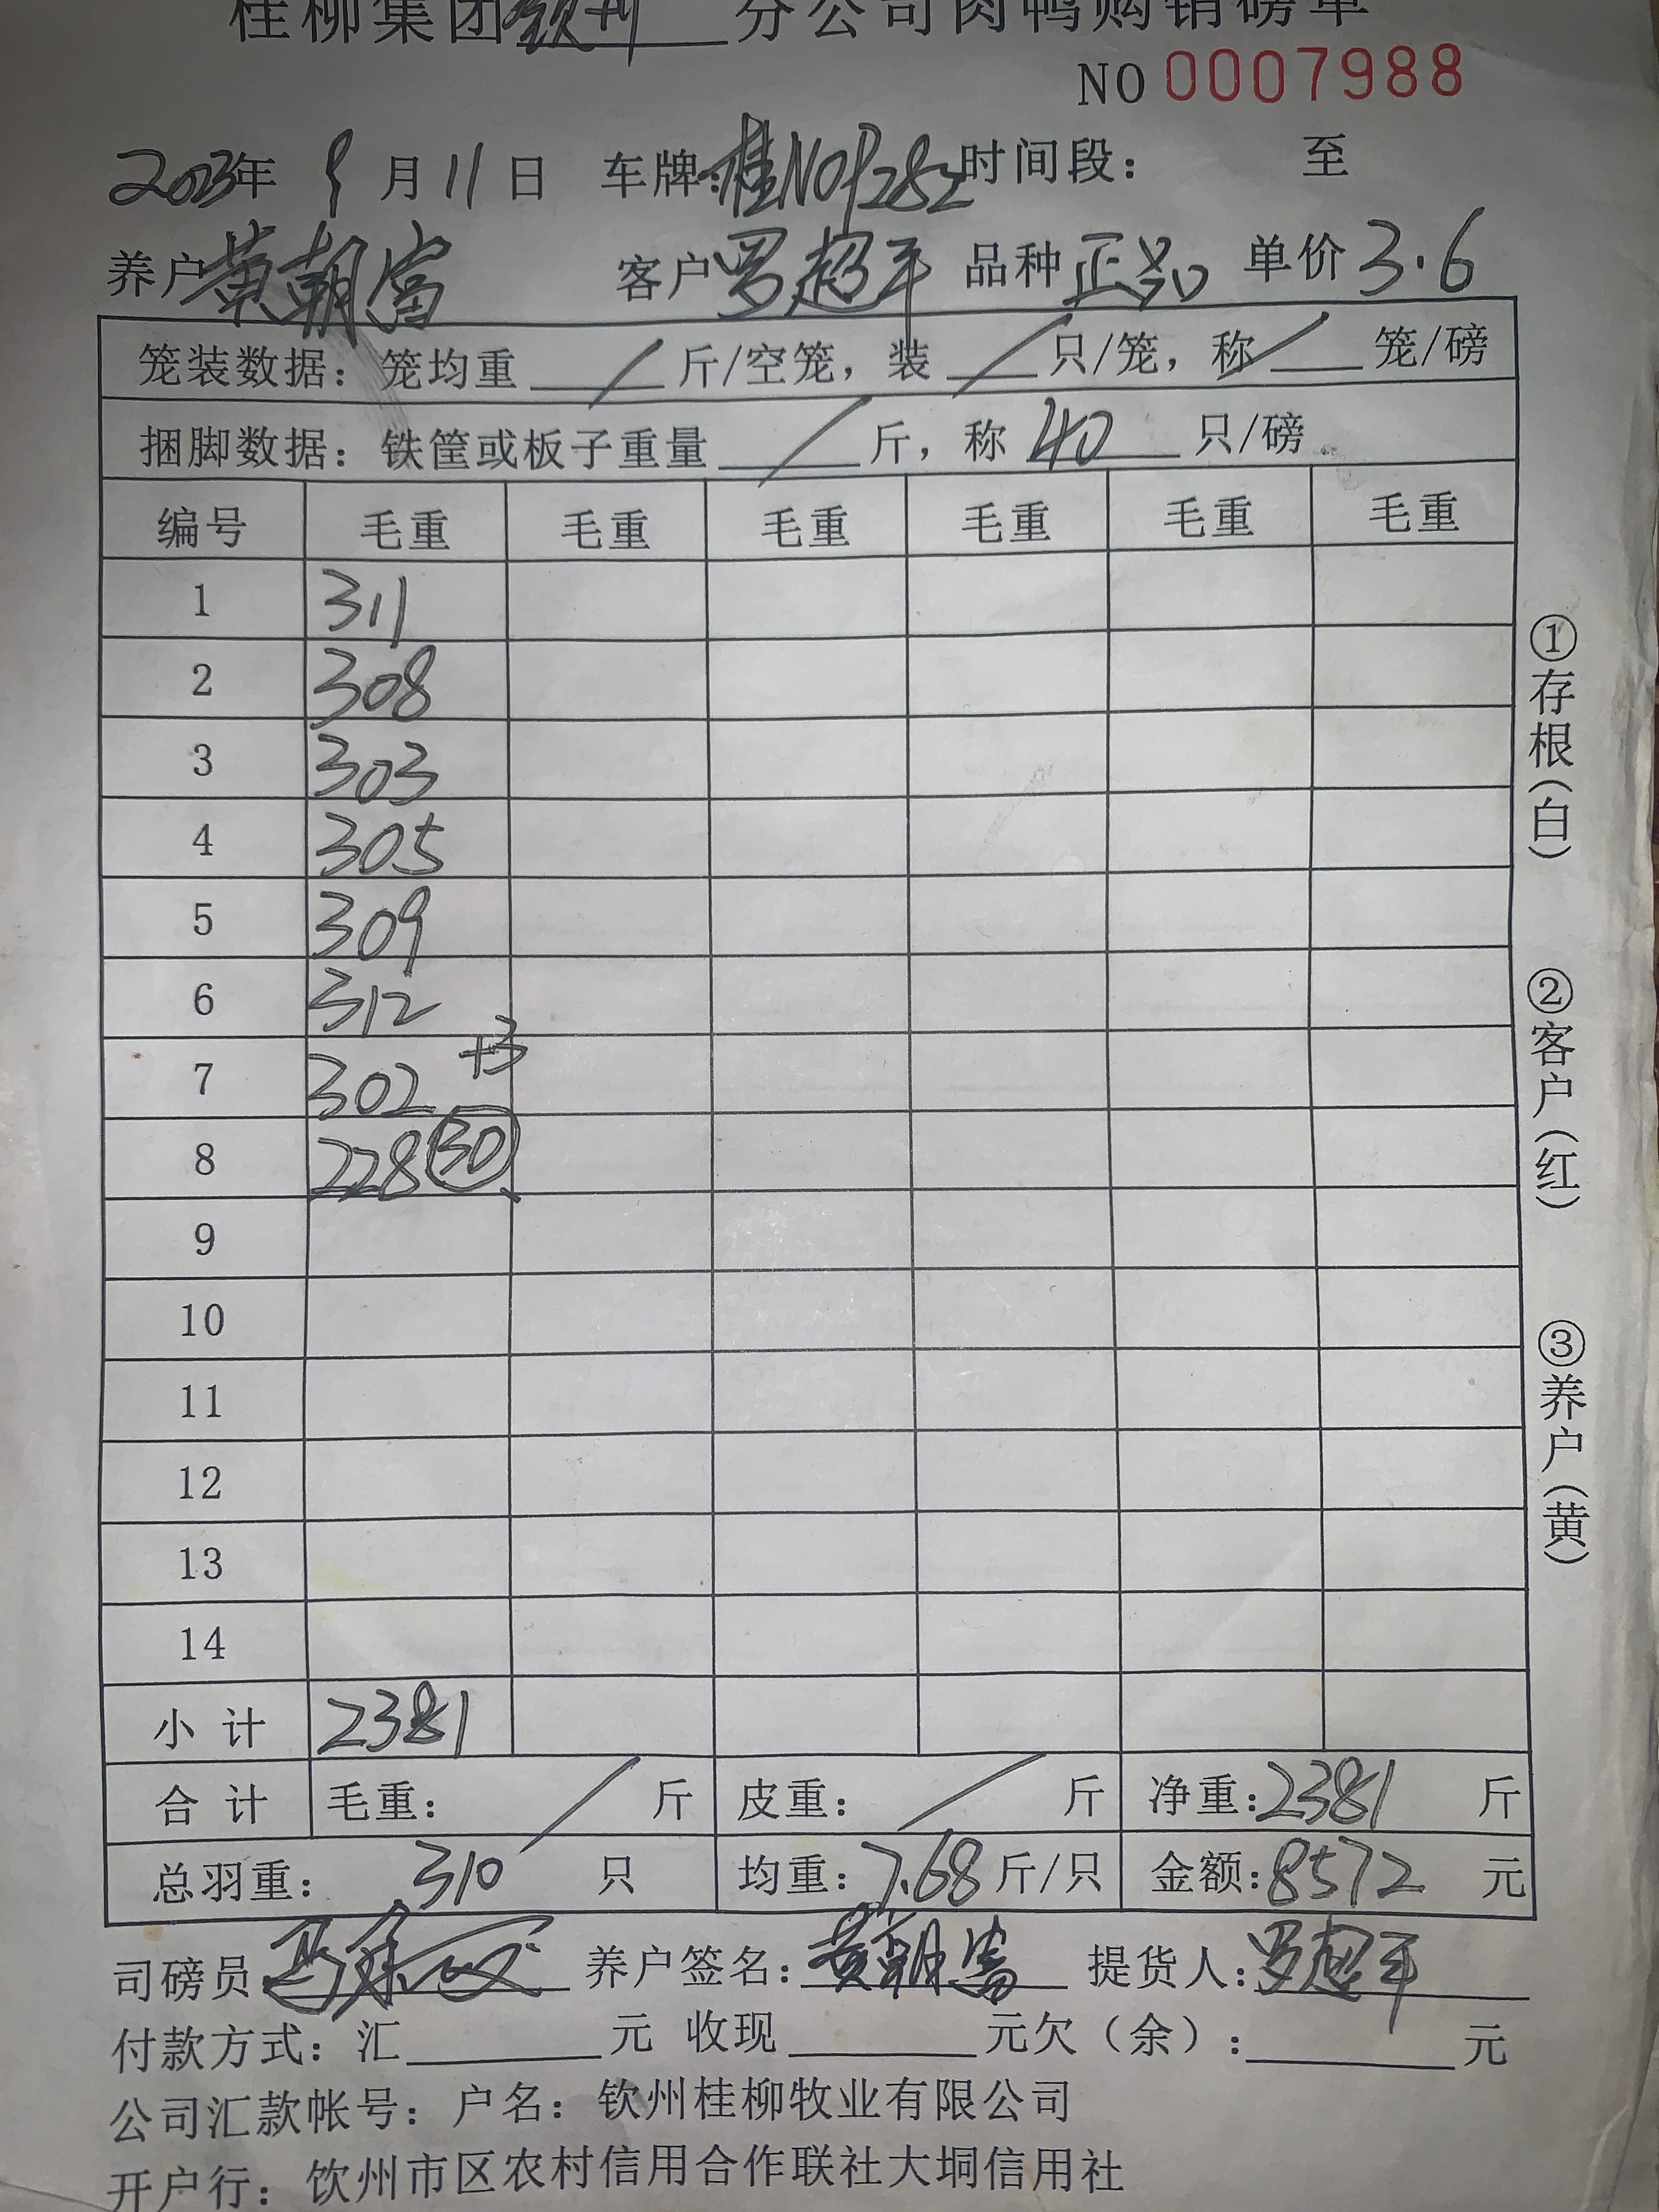 桂柳集团钦州分公司肉鸭购销磅单
NO 0007988
2023年 9月11日 车牌:桂N0P282 时间段: 至
养户黄朝富 客户罗超平 品种正品 单价3.6
笼装数据:笼均重 / 斤/空笼,装 / 只/笼,称 / 笼/磅
捆脚数据:铁筐或板子重量 / 斤,称 40 只/磅
编号 毛重 毛重 毛重 毛重 毛重 毛重
1 311
2 308
3 303
4 305
5 309
6 312
7 302 +3
8 228 30
9
10
11
12
13
14
小计 2381
合计 毛重: / 斤 皮重: / 斤 净重:2381 斤
总羽重: 310 只 均重:7.68斤/只 金额:8572 元
司磅员 养户签名:黄朝富 提货人:罗超平
付款方式:汇 元 收现 元欠(余): 元
公司汇款帐号:户名:钦州桂柳牧业有限公司
开户行:钦州市区农村信用合作联社大垌信用社
①存根(白)
②客户(红)
③养户(黄)